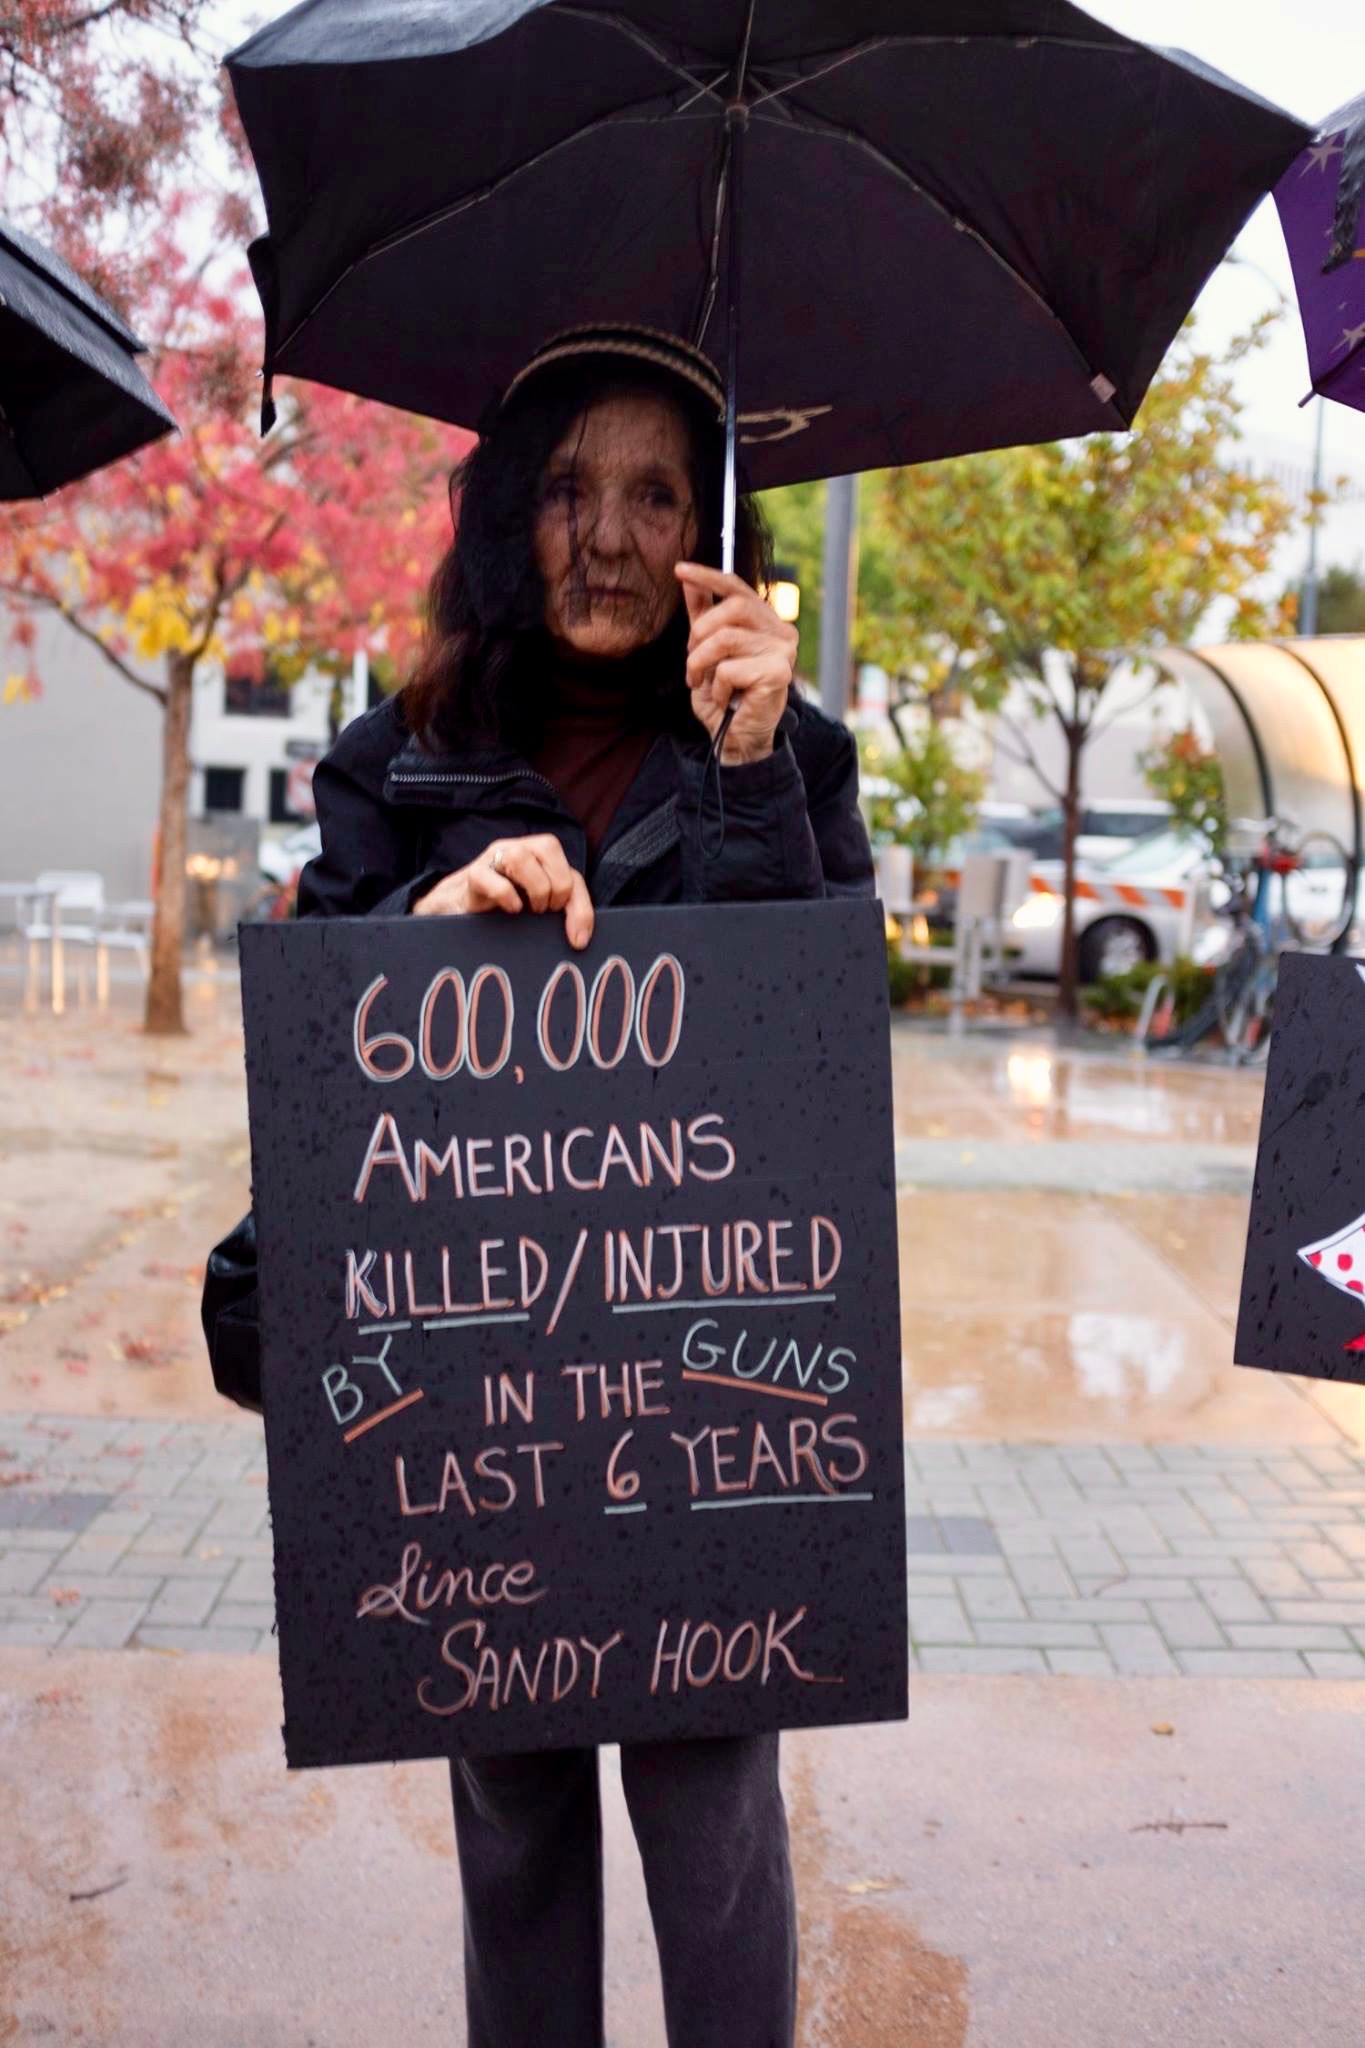 600,000
AMERICANS
KILLED/INJURED
BY IN THE GUNS
LAST 6 YEARS
Since
SANDY HOOK